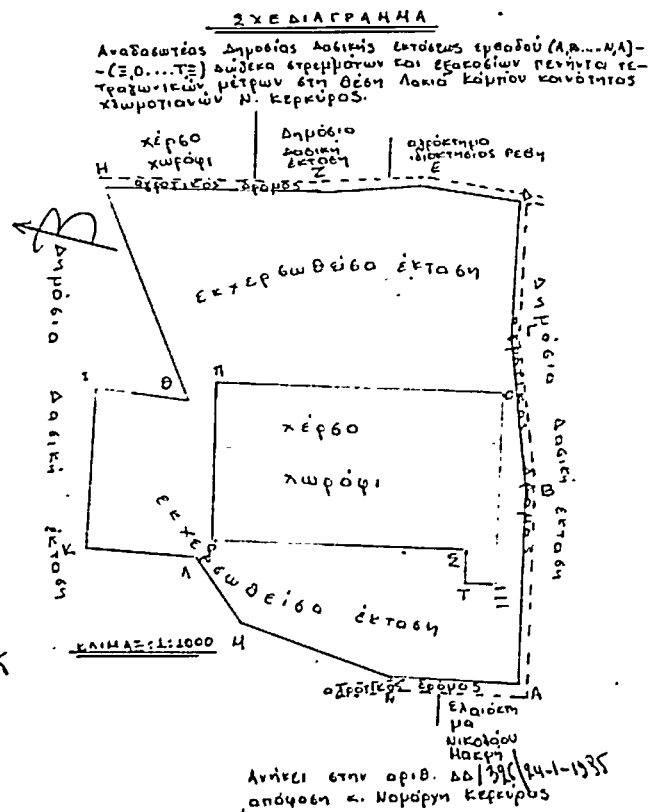 ΣΧΕΔΙΑΓΡΑΜΜΑ
Αναδασωτέας Δημοσίας Δασικής εκτάσεως εμβαδού (Α,Β....Ν,Α)-
-(Ξ,Ο....Τ,Ξ) Δώδεκα στρεμμάτων και εξακοσίων πενήντα τε-
τραγωνικών μέτρων στη θέση Λακιά Κάμπου κοινότητας
χλωμοτιανών Ν. Κερκύρας.
χέρσο
χωράφι
Δημόσια
δασική
έκταση
αγρόκτημα
ιδιοκτησίας
Η
Ζ
Ε
Δ
αγροτικός δρόμος
εκχερσωθείσα έκταση
Δημόσια Δασική έκταση
Δημόσια Δασική έκταση
αγροτικός δρόμος
Ι
Θ
Π
Ο
χέρσο
χωράφι
Β
Κ
Λ
Ρ
Σ
Τ
Ξ
εκχερσωθείσα έκταση
Μ
ΚΛΙΜΑΞ:1:1000
αγροτικός δρόμος
Ν
Α
Ελαιόκτη
μα
Νικολάου
Μακρή
Ανήκει στην αριθ. ΔΔ/326/24-1-1935
απόφαση κ. Νομάρχη Κερκύρας